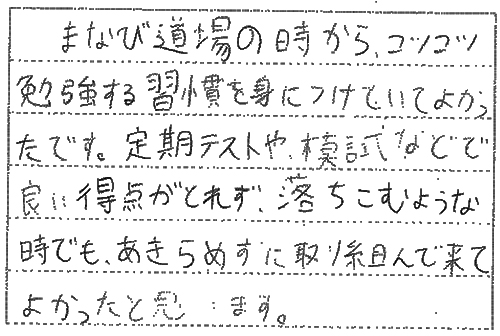 まなび道場の時から、コツコツ
勉強する習慣を身につけていてよかっ
たです。定期テストや、模試などで
良い得点がとれず、落ちこむような
時でも、あきらめずに取り組んで来て
よかったと思います。